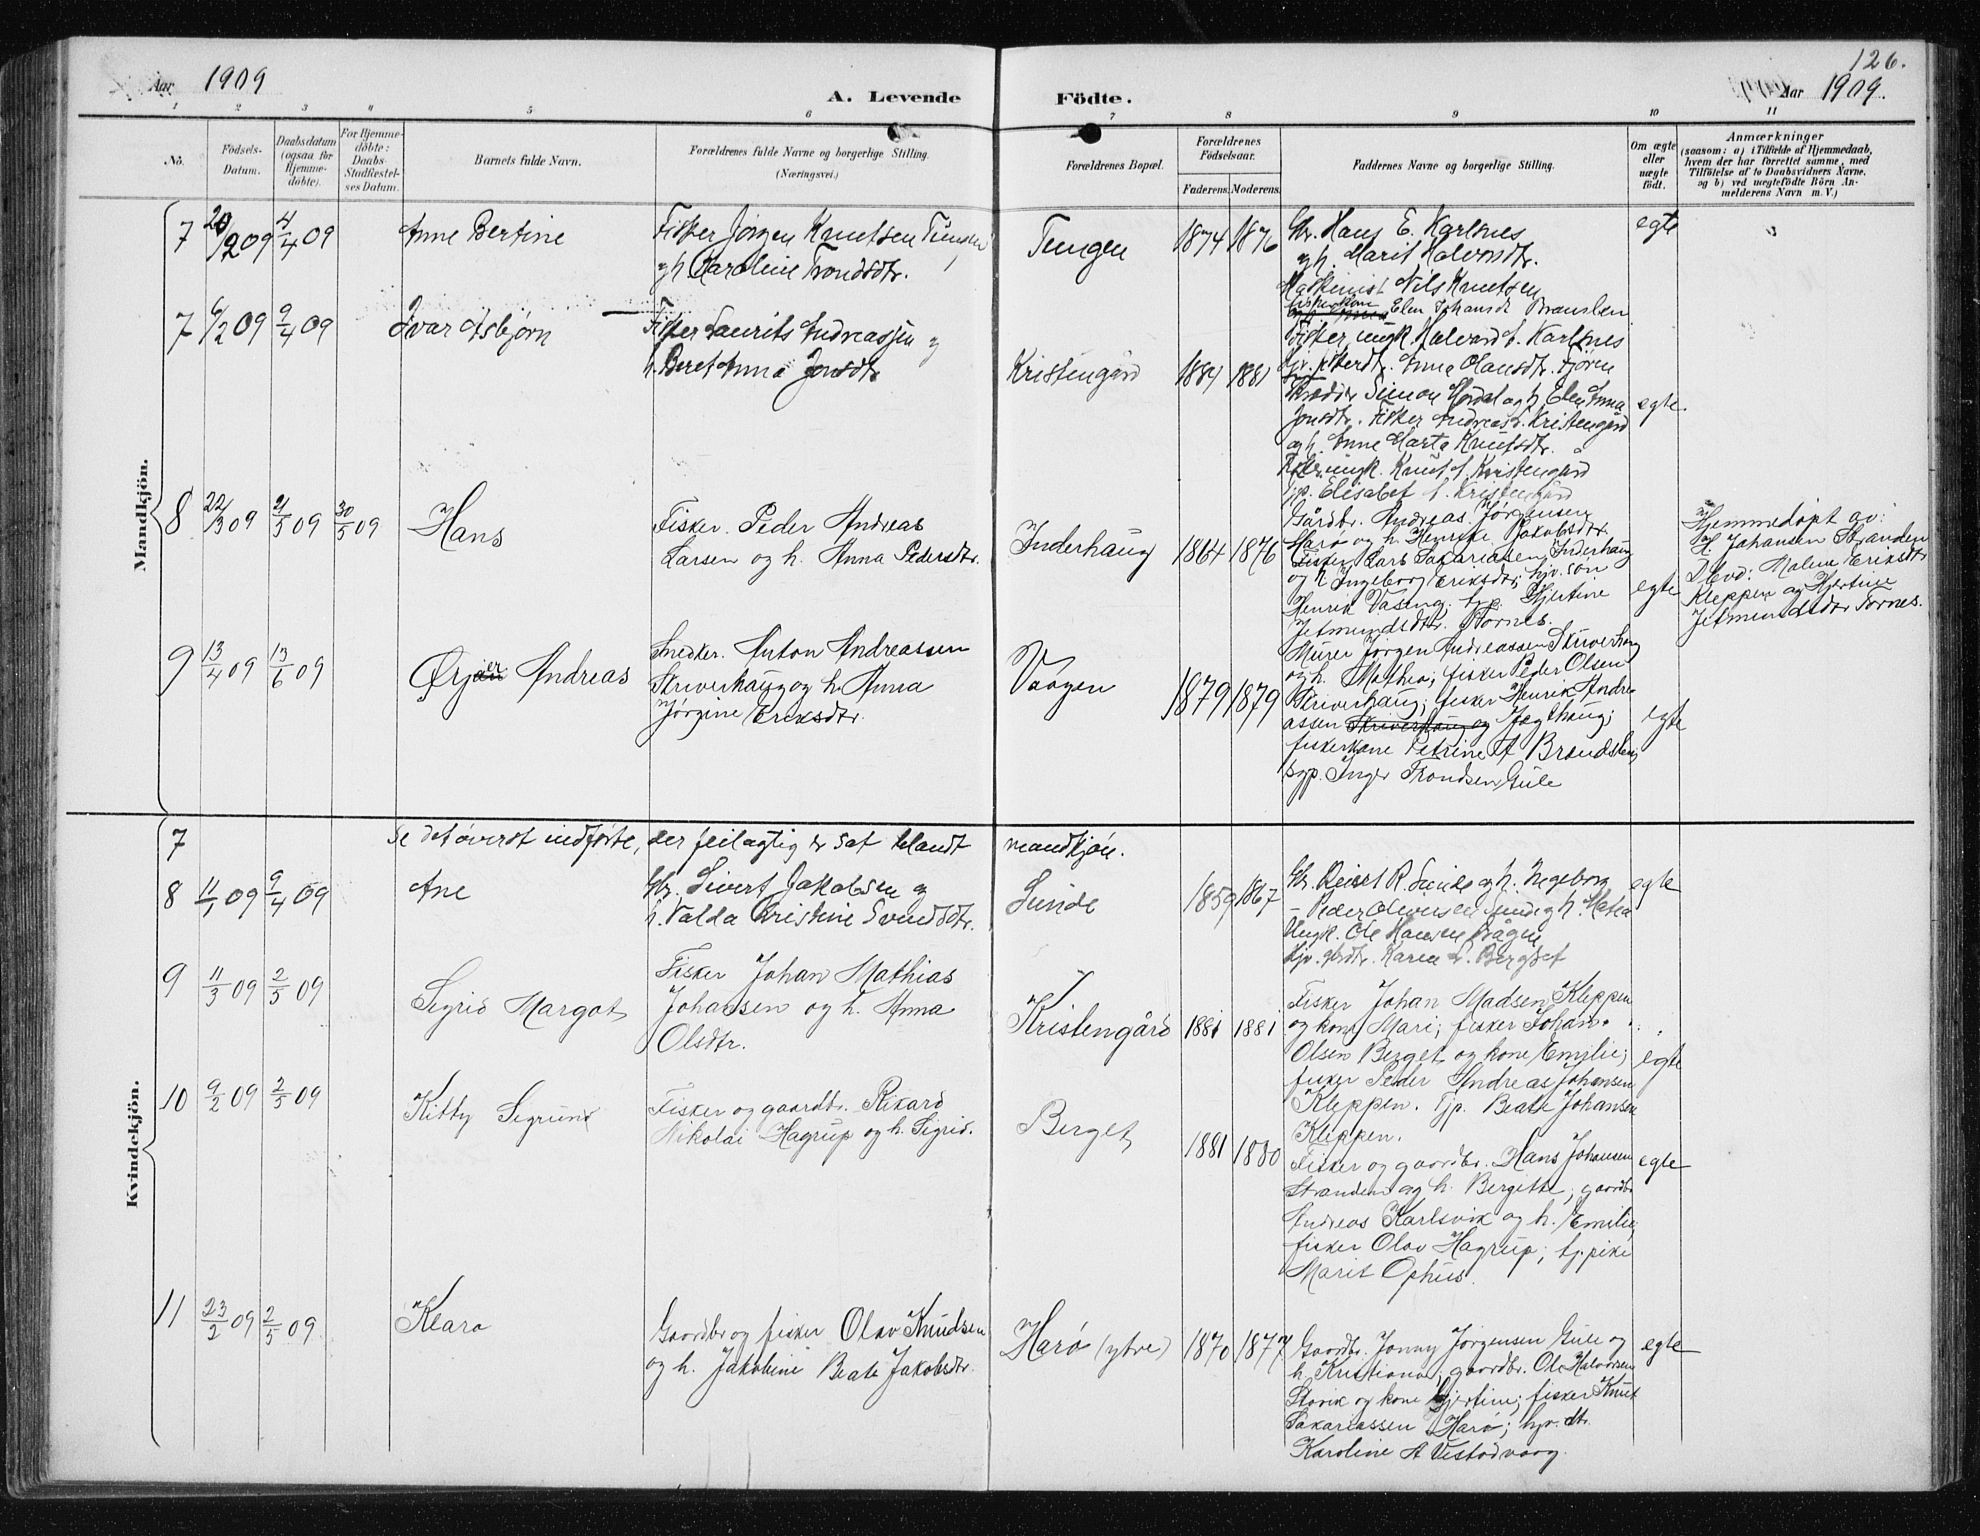 126.
Aar 1909
A. Levende Födte.
Aar 1909.
1 2 3 4 5 6 7 8 9 10 11
No.
Födsels-Datum.
Daabsdatum (ogsaa for Hjemme-döbte).
For Hjemme-döbte: Daabs-Stadfæstel-ses Datum.
Barnets fulde Navn.
Forældrenes fulde Navne og borgerlige Stilling. (Næringsvei.)
Forældrenes Bopæl.
Forældrenes Födselsaar.
Faderens. Moderens.
Faddernes Navne og borgerlige Stilling.
Om ægte eller uægte födt.
Anmærkninger
(saasom: a) i Tilfælde af Hjemmedaab, hvem der har forrettet samme, med Tilföielse af to Daabsvidners Navne, og b) ved uægtefödte Börn An-melderens Navn m. V.)
Mandkjön.
7 20/2 09 4/4 09 Anne Bertine
Fisker Jörgen Knutsen Tungen
og h. Caroline Trondsdtr.
Tungen 1874 1876
Gbr. Hans E. Karlsnes
og h. Marit Halvorsdtr.
Maskinist Nils Knutsen
fiskerkone Elen Johansdt Brænslen
Fisker ungk. Halvard H. Karlsnes
egte
7 6/2 09 9/4 09 Ivar Asbjörn
Fisker Laurits Andreassen og
h. Beret Anna Jonsdtr
Kristengård 1884 1881
Anne Olausdtr.
Skrædder Simon Hördal og h. Elen Anna
Jonsdtr. Fisker Andreas L. Kristengård
og h. Anne Marta Knutsdtr.
Fisker ungk. Knut A. Kristengård
Pp. Elisabet L. Kristengård
egte.
8 22/3 09 2/5 09 30/5 09 Hans
Fisker Peder Andreas
Larsen og h. Anna Pedersdtr.
Inderhaug 1864 1876
Gårdbr. Andreas Jörgensen
Harö og h. Henrike Jakobsdtr.
Fisker Lars Sakariasen Inderhaug
og h. Ingeborg Eriksdtr; hjv. sön
Henrik Vasing; tjp. Hjertine
Jetmundsdtr. Tornes.
egte
Hjemmedöpt av:
H. Johansen Stranden
Dbvd: Malene Eriksdtr
Kleppen og Hjertine
Jetmundsdtr Tornes.
9 13/4 09 13/6 09 Örjer Andreas
Snedker. Anton Andreassen
Skriverhaug og h. Anna
Jörgine Eriksdtr.
Vaagen 1879 1879
Murer Jörgen Andreassen Skriverhaug
og h. Mathea; fisker Peder Olsen
Skriverhaug; fisker Henrik Andre
assen Skriverhaug og Jægthaug;
fiskerkone Petrine A Brandshaug
tjp. Inger Trondsen Gule
egte
Kvindekjön.
7 Se det överst indförte, der feilagtig er sat blandt mandkjön.
8 11/1 09 9/4 09 Ane
Gbr. Sivert Jakobsen og
h. Valda Kristine Svendsdtr.
Sunde 1859 1867
Gbr. Reiel R. Sunde og h. Ingeborg
– Peder Olaussen Sunde og h. Matea
Ungk. Ole Hansen Vågen
hjv. gbrdtr. Karen L. Bergset
egte
9 11/3 09 2/5 09 Sigrid Margot
Fisker Johan Mathias
Johansen og h. Anna
Olsdtr.
Kristengård 1881 1881
Fisker Johan Madsen Kleppen
og kone Mari; fisker Johan
Olsen Berget og kone Emilie;
fisker Peder Andreas Johansen
Kleppen. Tjp. Beate Johansen
Kleppen.
egte
10 9/2 09 2/5 09 Kitty Sigrund
Fisker og gaardbr. Rikard
Nikolai Hagrup og h. Sigrid.
Berget 1881 1880
Fisker og gaardbr. Hans Johansen
Stranden og h. Bergitte; gaardbr
Andreas Karlsvik og h. Emilie;
fisker Olav Hagrup; tj.pike
Marit Ophus.
egte
11 23/2 09 2/5 09 Klara
Gaardbr og fisker Olav Knudsen
og h. Jakobine Beate Jakobsdtr.
Harö (ytre) 1870 1877
Gaardbr. Jonny Jörgensen Gule og
h. Kristiane; gaardbr. Ole Halvorsen
Stavik og kone Hjertine; fisker Knut
Sakariassen Harö; hjv. dtr.
Karoline A Vestadvaag.
egte